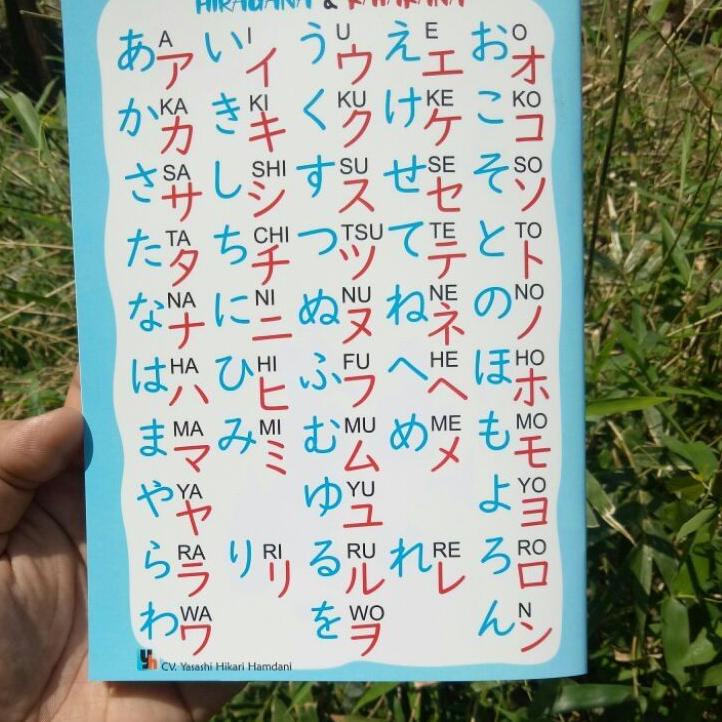 HIRAGANA & KATAKANA
あ A ア い I イ う U ウ え E エ お O オ
か KA カ き KI キ く KU ク け KE ケ こ KO コ
さ SA サ し SHI シ す SU ス せ SE セ そ SO ソ
た TA タ ち CHI チ つ TSU ツ て TE テ と TO ト
な NA ナ に NI ニ ぬ NU ヌ ね NE ネ の NO ノ
は HA ハ ひ HI ヒ ふ FU フ へ HE ヘ ほ HO ホ
ま MA マ み MI ミ む MU ム め ME メ も MO モ
や YA ヤ ゆ YU ユ よ YO ヨ
ら RA ラ り RI リ る RU ル れ RE レ ろ RO ロ
わ WA ワ を WO ヲ ん N ン
yh CV. Yasashi Hikari Hamdani